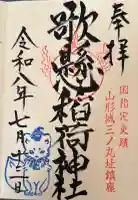 奉拝
国指定史跡
山形城三ノ丸址鎮座
歌懸稲荷神社
令和八年七月十二日